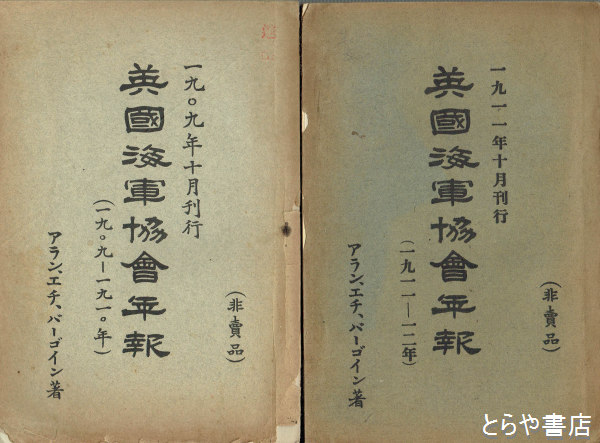 一九〇九年十月刊行
英國海軍協會年報
(一九〇九—一九一〇年)
アラン、エチ、バーゴイン著
(非賣品)
一九一一年十月刊行
英國海軍協會年報
(一九一一—一二年)
アラン、エチ、バーゴイン著
(非賣品)
とらや書店